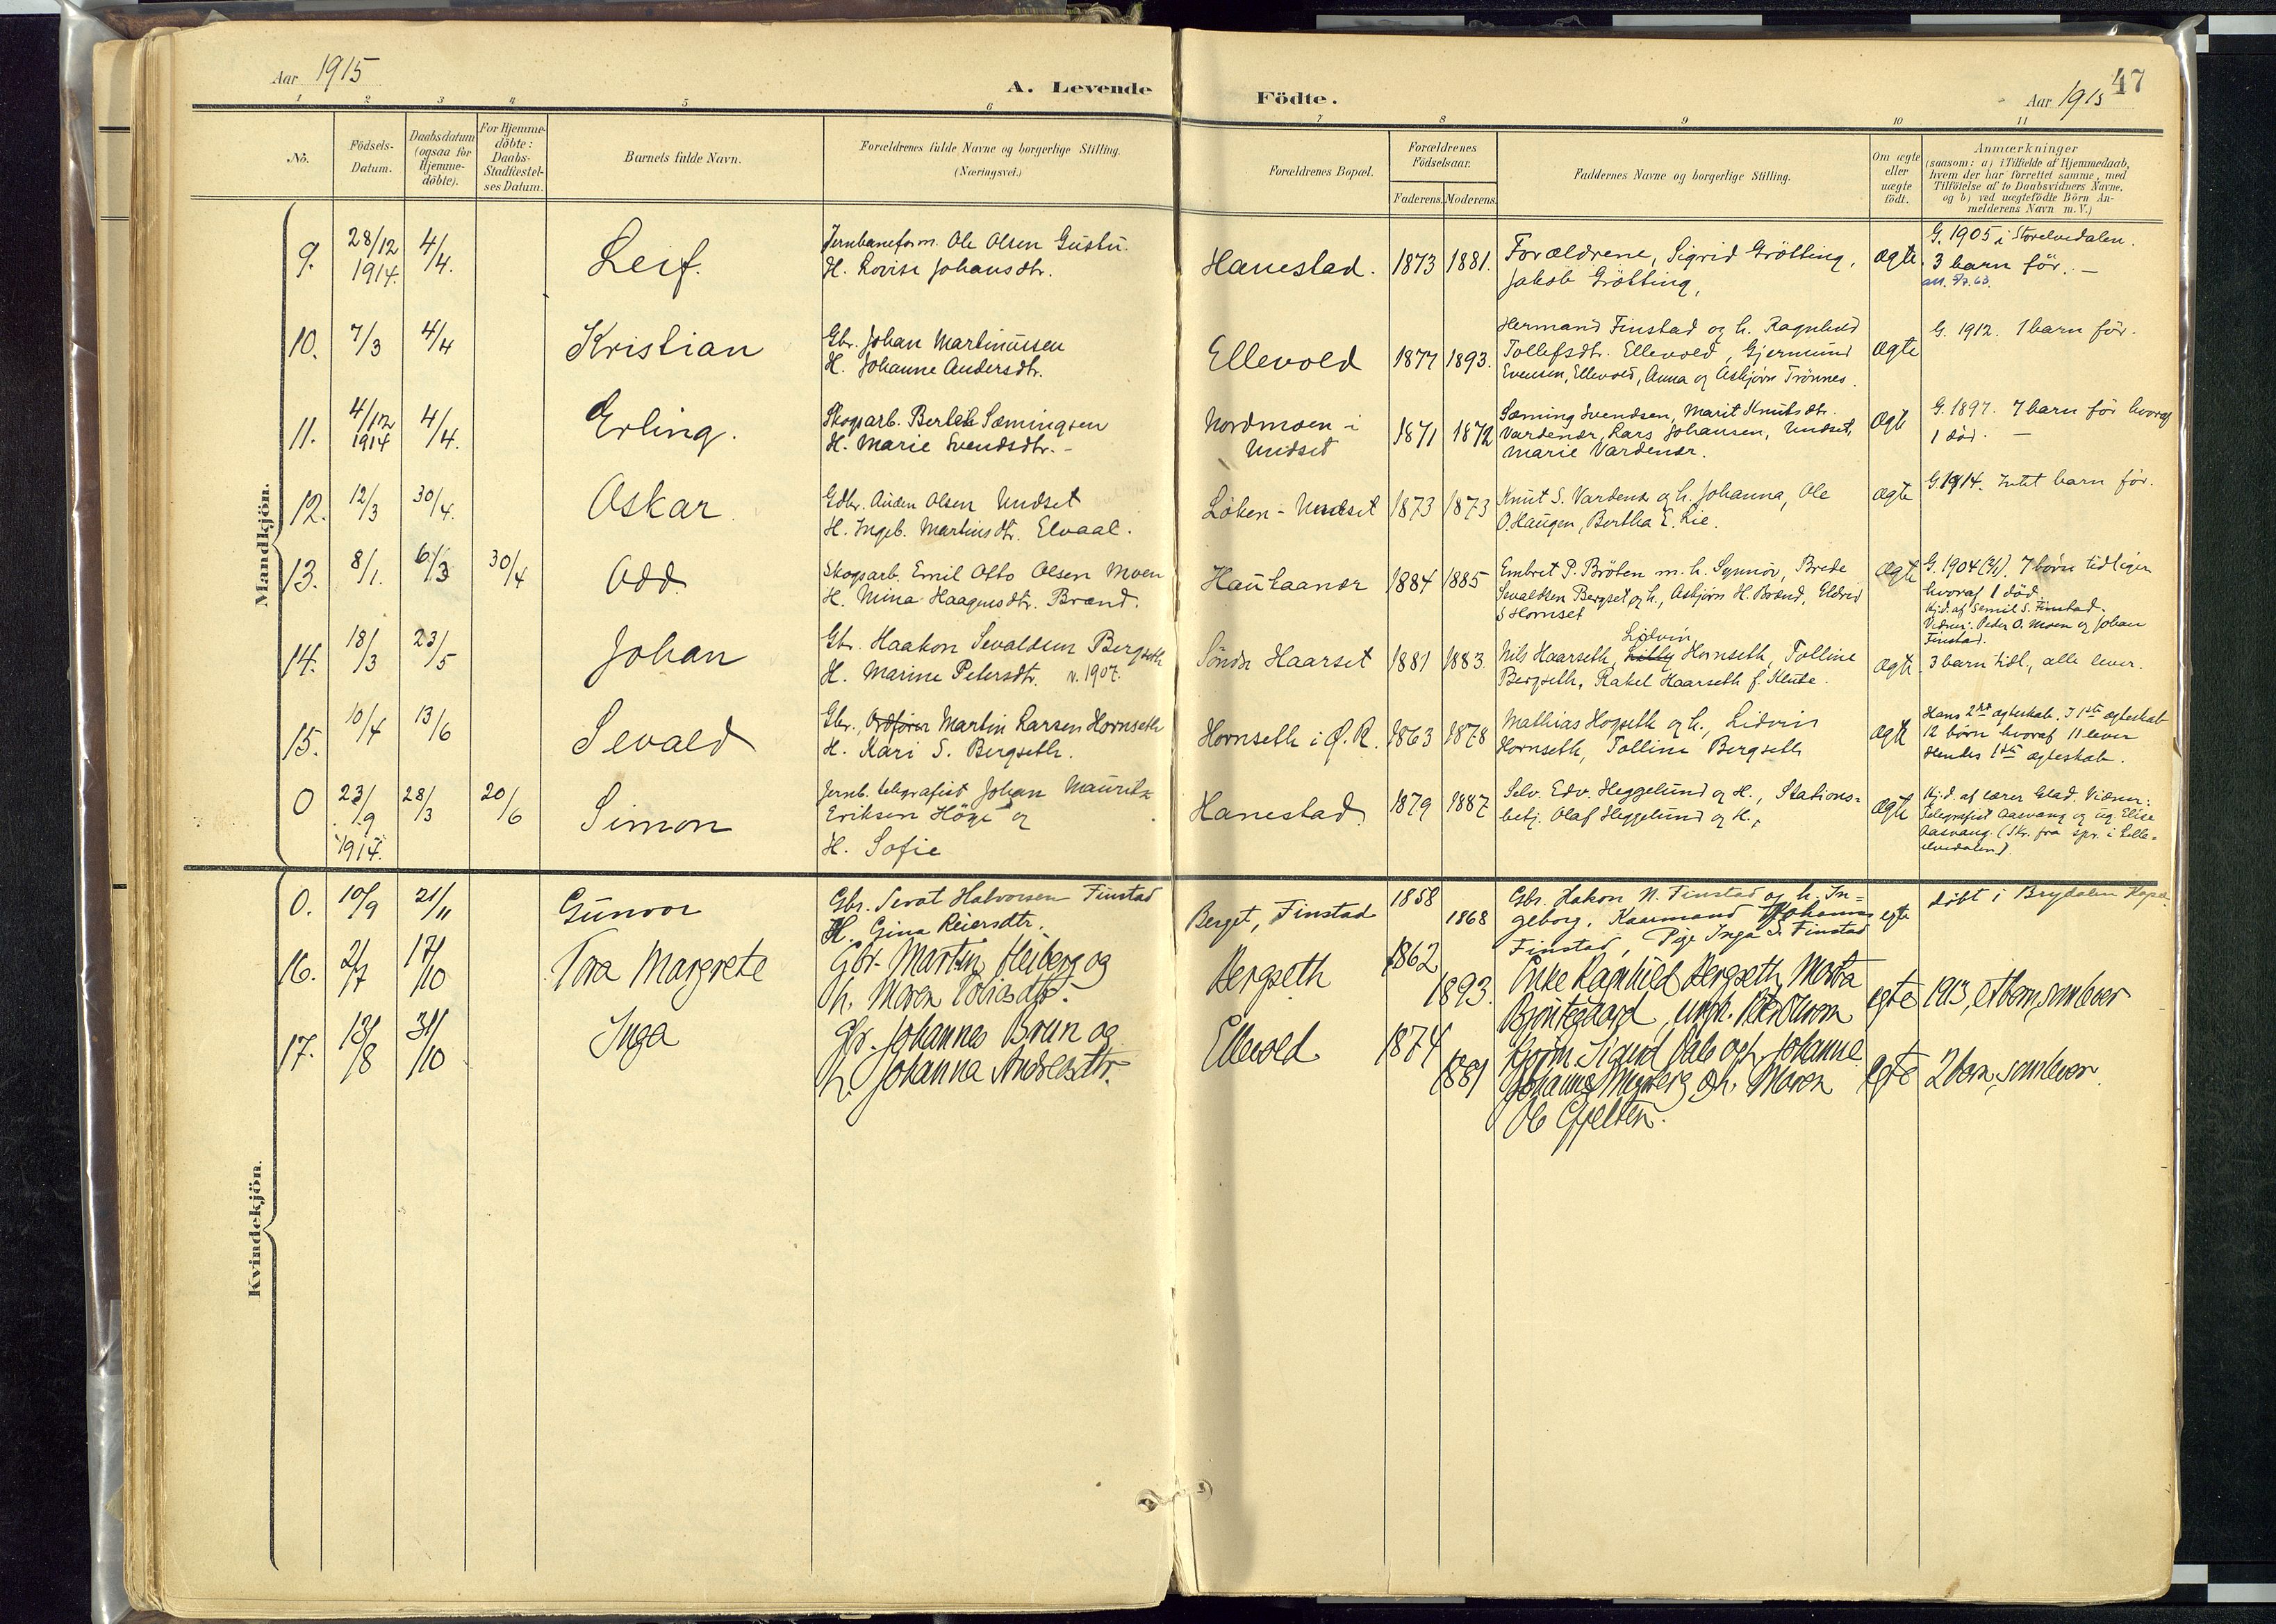 Aar 1915
A. Levende
Födte.
47
Aar 1915
1 2 3 4 5 6 7 8 9 10 11
No.
Födsels-
Datum.
Daabsdatum
(ogsaa for
Hjemme-
döbte).
For Hjemme-
döbte:
Daabs-
Stadfæstel-
ses Datum.
Barnets fulde Navn.
Forældrenes fulde Navne og borgerlige Stilling.
(Næringsvei.)
Forældrenes Bopæl.
Forældrenes
Födselsaar.
Faderens. Moderens.
Faddernes Navne og borgerlige Stilling.
Om ægte
eller
uægte
født.
Anmærkninger
(saasom: a) i Tilfælde af Hjemmedaab,
hvem der har forrettet samme, med
Tilföielse af to Daabsvidners Navne.
og b) ved uægtefödte Börn An-
melderens Navn m. V.)
Mandkjön.
9.
28/12
1914.
4/4.
Leif.
Jernbaneform. Ole Olsen Gustu.
H. Lovise Johansdtr.
Hanestad. 1873 1881.
Forældrene, Sigrid Grötting,
Jakob Grötting,
ægte.
G. 1905 i Storelvedalen.
3 barn för. –
10. 7/3 4/4
Kristian
Gbr. Johan Martinussen
H. Johanne Andersdtr.
Ellevold 1877 1893.
Hermand Finstad og h. Ragnhild
Tollefsdtr. Ellevold, Gjermund
Evensen, Ellevold, Anna og Asbjörn Trönnes.
ægte
G. 1912. 1 barn för.
11.
4/12
1914
4/4.
Erling.
Skogsarb. Bertel Sæmingsen
H. Marie Svendsdtr. -
Nordmoen i
Undset
1871 1872
Sæming Svendsen, Marit Knutsdtr.
Vardenær, Lars Johansen, Undset,
Marie Vardenær.
ægte
G. 1897. 7 barn för hvoraf
1 död. –
12. 12/3 30/4.
Oskar.
Gdbr. Auden Olsen Undset
H. Ingeb. Martinsdtr. Elvaal.
Löken - Undset 1873 1873
Knut S. Vardenær og h. Johanna, Ole
O. Haugen, Bertha E. Lie.
ægte
G. 1914. Intet barn för.
13. 8/1. 6/3 30/4
Odd.
Skogsarb. Emil Otto Olsen Moen
H. Mina Haagensdtr. Brænd.
Haugaanær 1884 1885
Embret P. Bröten m. h. Synnöv, Brede
Sevaldsen Bergset og h., Asbjörn H. Brænd, Eldrid
S Hornset
ægte
G. 1904. 7 börn tidligere
hvoraf 1 död.
Hj.d. af Semil S. Finstad.
Vidner: Peder O. Moen og Johan
Finstad.
14. 18/3 23/5
Johan
Gbr. Haakon Sevaldsen Bergseth
H. Marine Petersdtr. v. 1907.
Söndre Haarset 1881 1883.
Lidvin
Nils Haarseth, Lilly Hornseth, Tolline
Bergseth, Rakel Haarseth f. Klute.
ægte.
3 barn tidl., alle lever.
15. 10/4 13/6
Sevald
Gbr., Ordförer Martin Larsen Hornseth
H. Kari S. Bergseth.
Hornseth i Ø. R. 1863 1878
Mathias Hogseth og h., Lidvin
Hornseth, Tolline Bergseth
ægte
Hans 2det ægteskab. I 1ste ægteskab
12 börn hvoraf 11 lever
Hendes 1ste ægteskab.
0
23/9
1914.
28/3 20/6
Simon
Jernb. telegrafist Johan Mauritz
Eriksen Höge og
H. Sofie
Hanestad. 1879 1887
Selv. Edv. Heggelund og H., Stations-
betj. Olaf Heggelund og H.,
ægte
Hj.d. af lærer Glad. Vidner:
Telegrafist Aasvang og ug. Elise
Aasvang. (Skr. fra spr. i Lille-
elvedalen).
Kvindekjön.
0. 10/9 21/11
Gunvor
Gbr. Sevat Halvorsen Finstad
H. Gina Reiersdtr.
Berget, Finstad 1858 1868
Gbr. Hakon N. Finstad og h. In-
geborg. Kaarmand Johannes
Finstad, Pige Inga S. Finstad
egte
döbt i Brydalen Kapel.
16. 2/7 17/10
Tora Margrete
Gbr. Martin Heiberg og
h. Maren Tobiasdtr.
Bergseth 1862 1893.
Enke Ragnhild Bergseth, Marta
Bjöntegaard, ungk. Peter Thoren
egte
1913, et barn, som lever
17. 13/8 31/10
Inga
Gbr. Johannes Brun og
h. Johanna Andersdtr.
Ellevold 1874 1881
Sigurd Dal og h. Johanne
Johannes Myrberg og h. Maren
Ole Gjelten.
egte
2 barn, som lever.